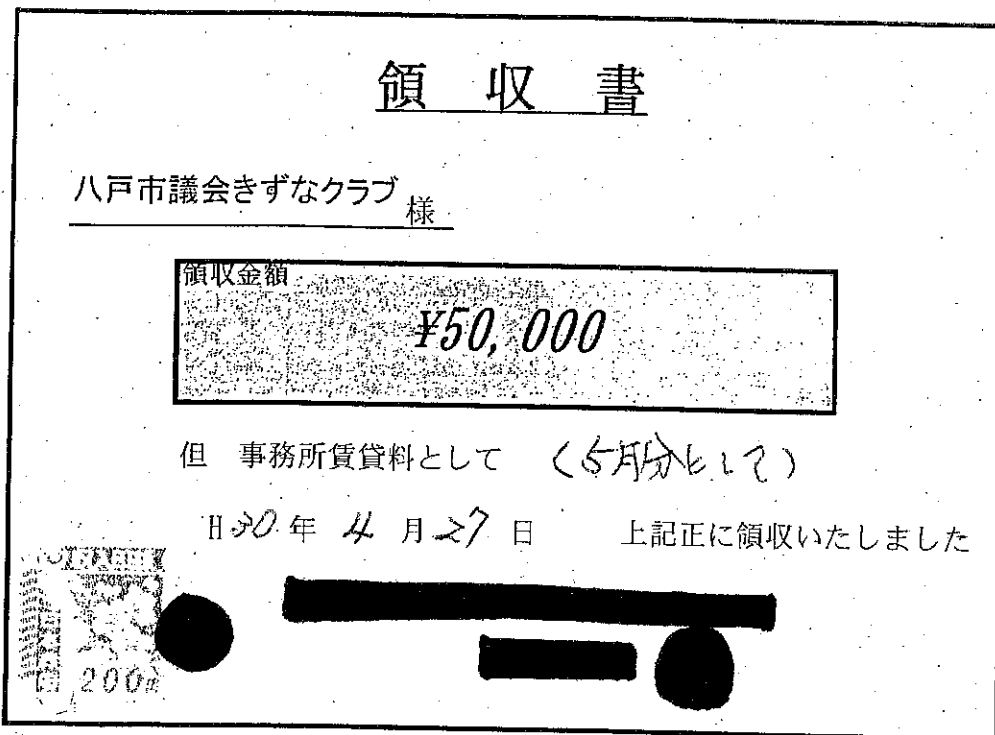 領収書
八戸市議会きずなクラブ 様
領収金額
¥50,000
但 事務所賃貸料として (5月分として)
H30年 4月27日 上記正に領収いたしました
200